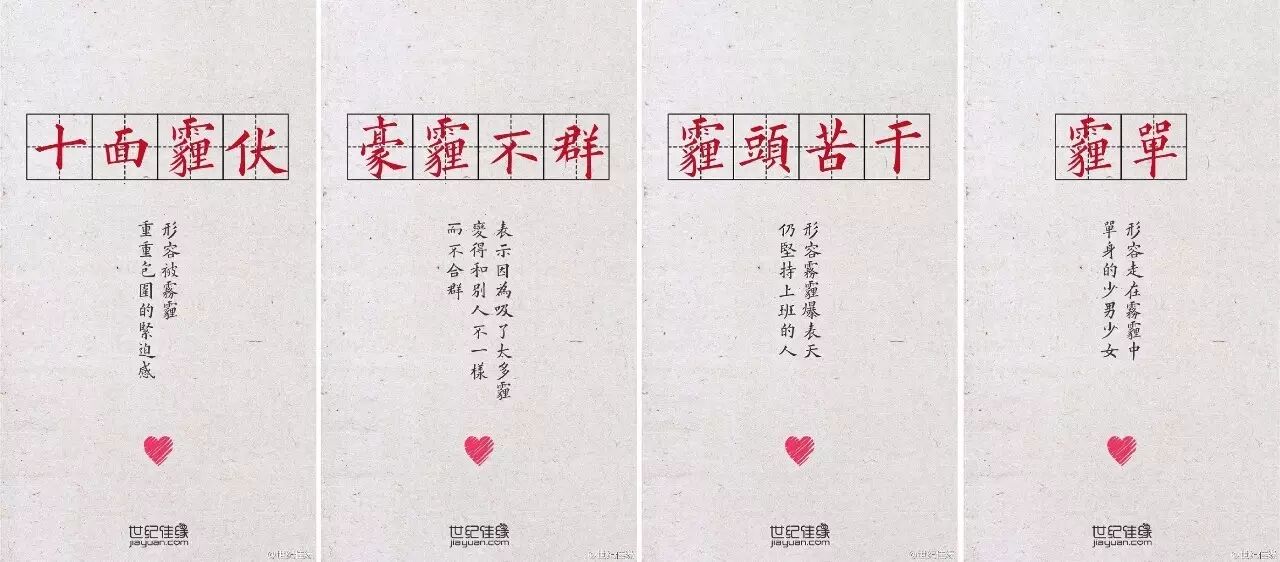 十面霾伏
形容被霧霾
重重包圍的緊迫感
世纪佳缘
jiayuan.com
豪霾不群
表示因為吸了太多霾
變得和別人不一樣
而不合群
世纪佳缘
jiayuan.com
霾頭苦干
形容霧霾爆表天
仍堅持上班的人
世纪佳缘
jiayuan.com
霾單
形容走在霧霾中
單身的少男少女
世纪佳缘
jiayuan.com